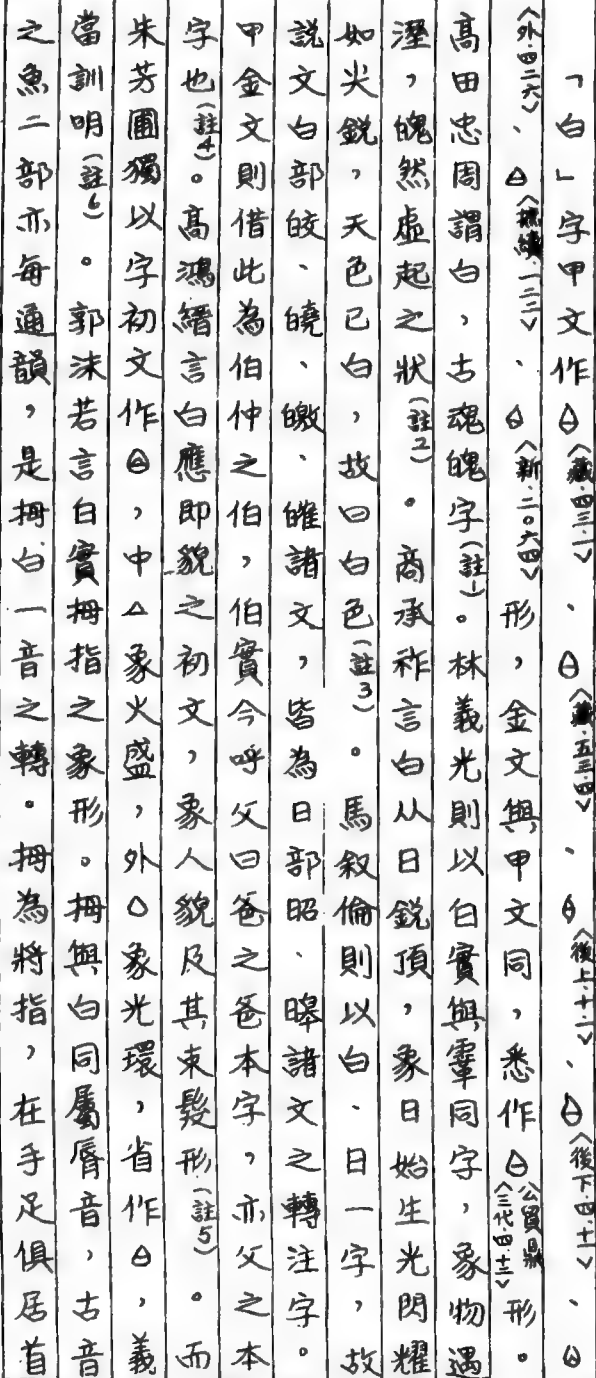 「白」字甲文作〈藏.四三.一〉、〈藏.五三.四〉、〈後上.十.一〉、〈後下.四.十一〉、
〈外.四二六〉、〈摭續.一二二〉、〈新.二〇六四〉形,金文與甲文同,悉作〈公貿鼎 三代.四.十二〉形。
高田忠周謂白,古魂魄字(註1)。林義光則以白實與䨣同字,象物遇
溼,魄然虛起之狀(註2)。商承祚言白从日銳頂,象日始生光閃耀
如尖銳,天色已白,故曰白色(註3)。馬叙倫則以白、日一字,故
說文白部皎、曉、皦、皠諸文,皆為日部昭、皞諸文之轉注字。
甲金文則借此為伯仲之伯,伯實今呼父曰爸之爸本字,亦父之本
字也(註4)。高鴻縉言白應即貌之初文,象人貌及其束髮形(註5)。而
朱芳圃獨以字初文作,中△象火盛,外○象光環,省作,義
當訓明(註6)。郭沫若言白實拇指之象形。拇與白同屬脣音,古音
之魚二部亦每通韻,是拇白一音之轉。拇為將指,在手足俱居首